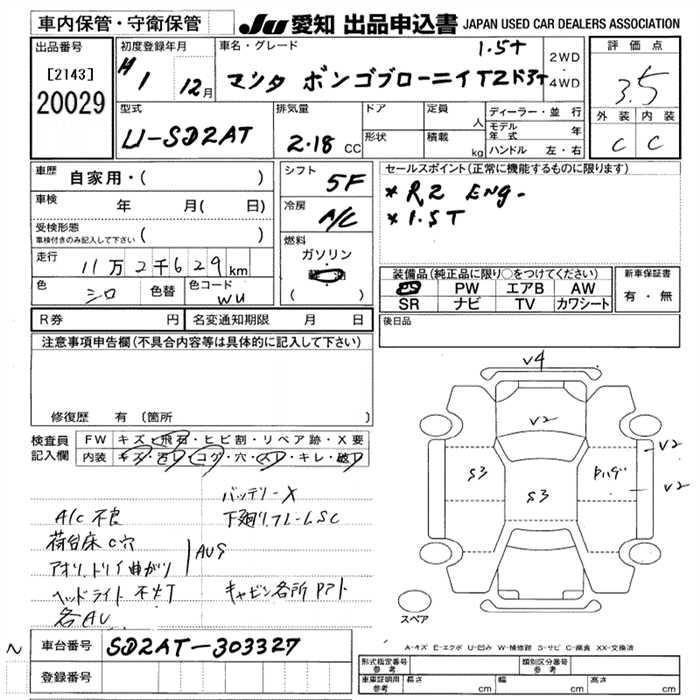 車内保管・守衛保管
JU 愛知 出品申込書 JAPAN USED CAR DEALERS ASSOCIATION
出品番号
[2143]
20029
初度登録年月
H1 12月
車名・グレード
1.5T
マツダ ボンゴブローニイTZドラT
2WD
・
4WD
評価点
3.5
外装 内装
C C
型式
U-SD2AT
排気量
2.18 CC
ドア
形状
定員
人
積載
kg
ディーラー・並行
モデル年式 年
ハンドル 左・右
車歴 自家用・( )
車検 年 月( 日)
受検形態
車検付きのみ記入して下さい ( )
走行 11万2千629km
色 シロ 色替 色コード WU
シフト 5F
冷房 A/C
燃料
ガソリン
( )
セールスポイント(正常に機能するものに限ります)
* R2 ENG-
* 1.5T
装備品(純正品に限り○をつけてください)
PS PW エアB AW
SR ナビ TV カワシート
新車保証書
有・無
R券 円 名変通知期限 月 日
後日品
注意事項申告欄(不具合内容等は具体的に記入して下さい)
修復歴 有 〔箇所
検査員
記入欄
FW キズ・飛石・ヒビ割・リペア跡・X要
内装 キズ・汚レ・コゲ・穴・スレ・キレ・破レ
バッテリーX
A/C不良
下廻り,フレームSC
荷台床C穴
アオリ,トリイ曲がり
AU9
ヘッドライト不灯
キャビン各所Pアト
各AU
V4
V2
S3
S3
V2
V2
スペア
A-キズ E-エクボ U-凹み W-補修跡 S-サビ C-腐食 XX-交換済
N
車台番号 SD2AT-303327
登録番号
形式指定番号
参考
類別区分番号
参考
車庫証明用
参考
長さ cm 幅 cm 高さ cm